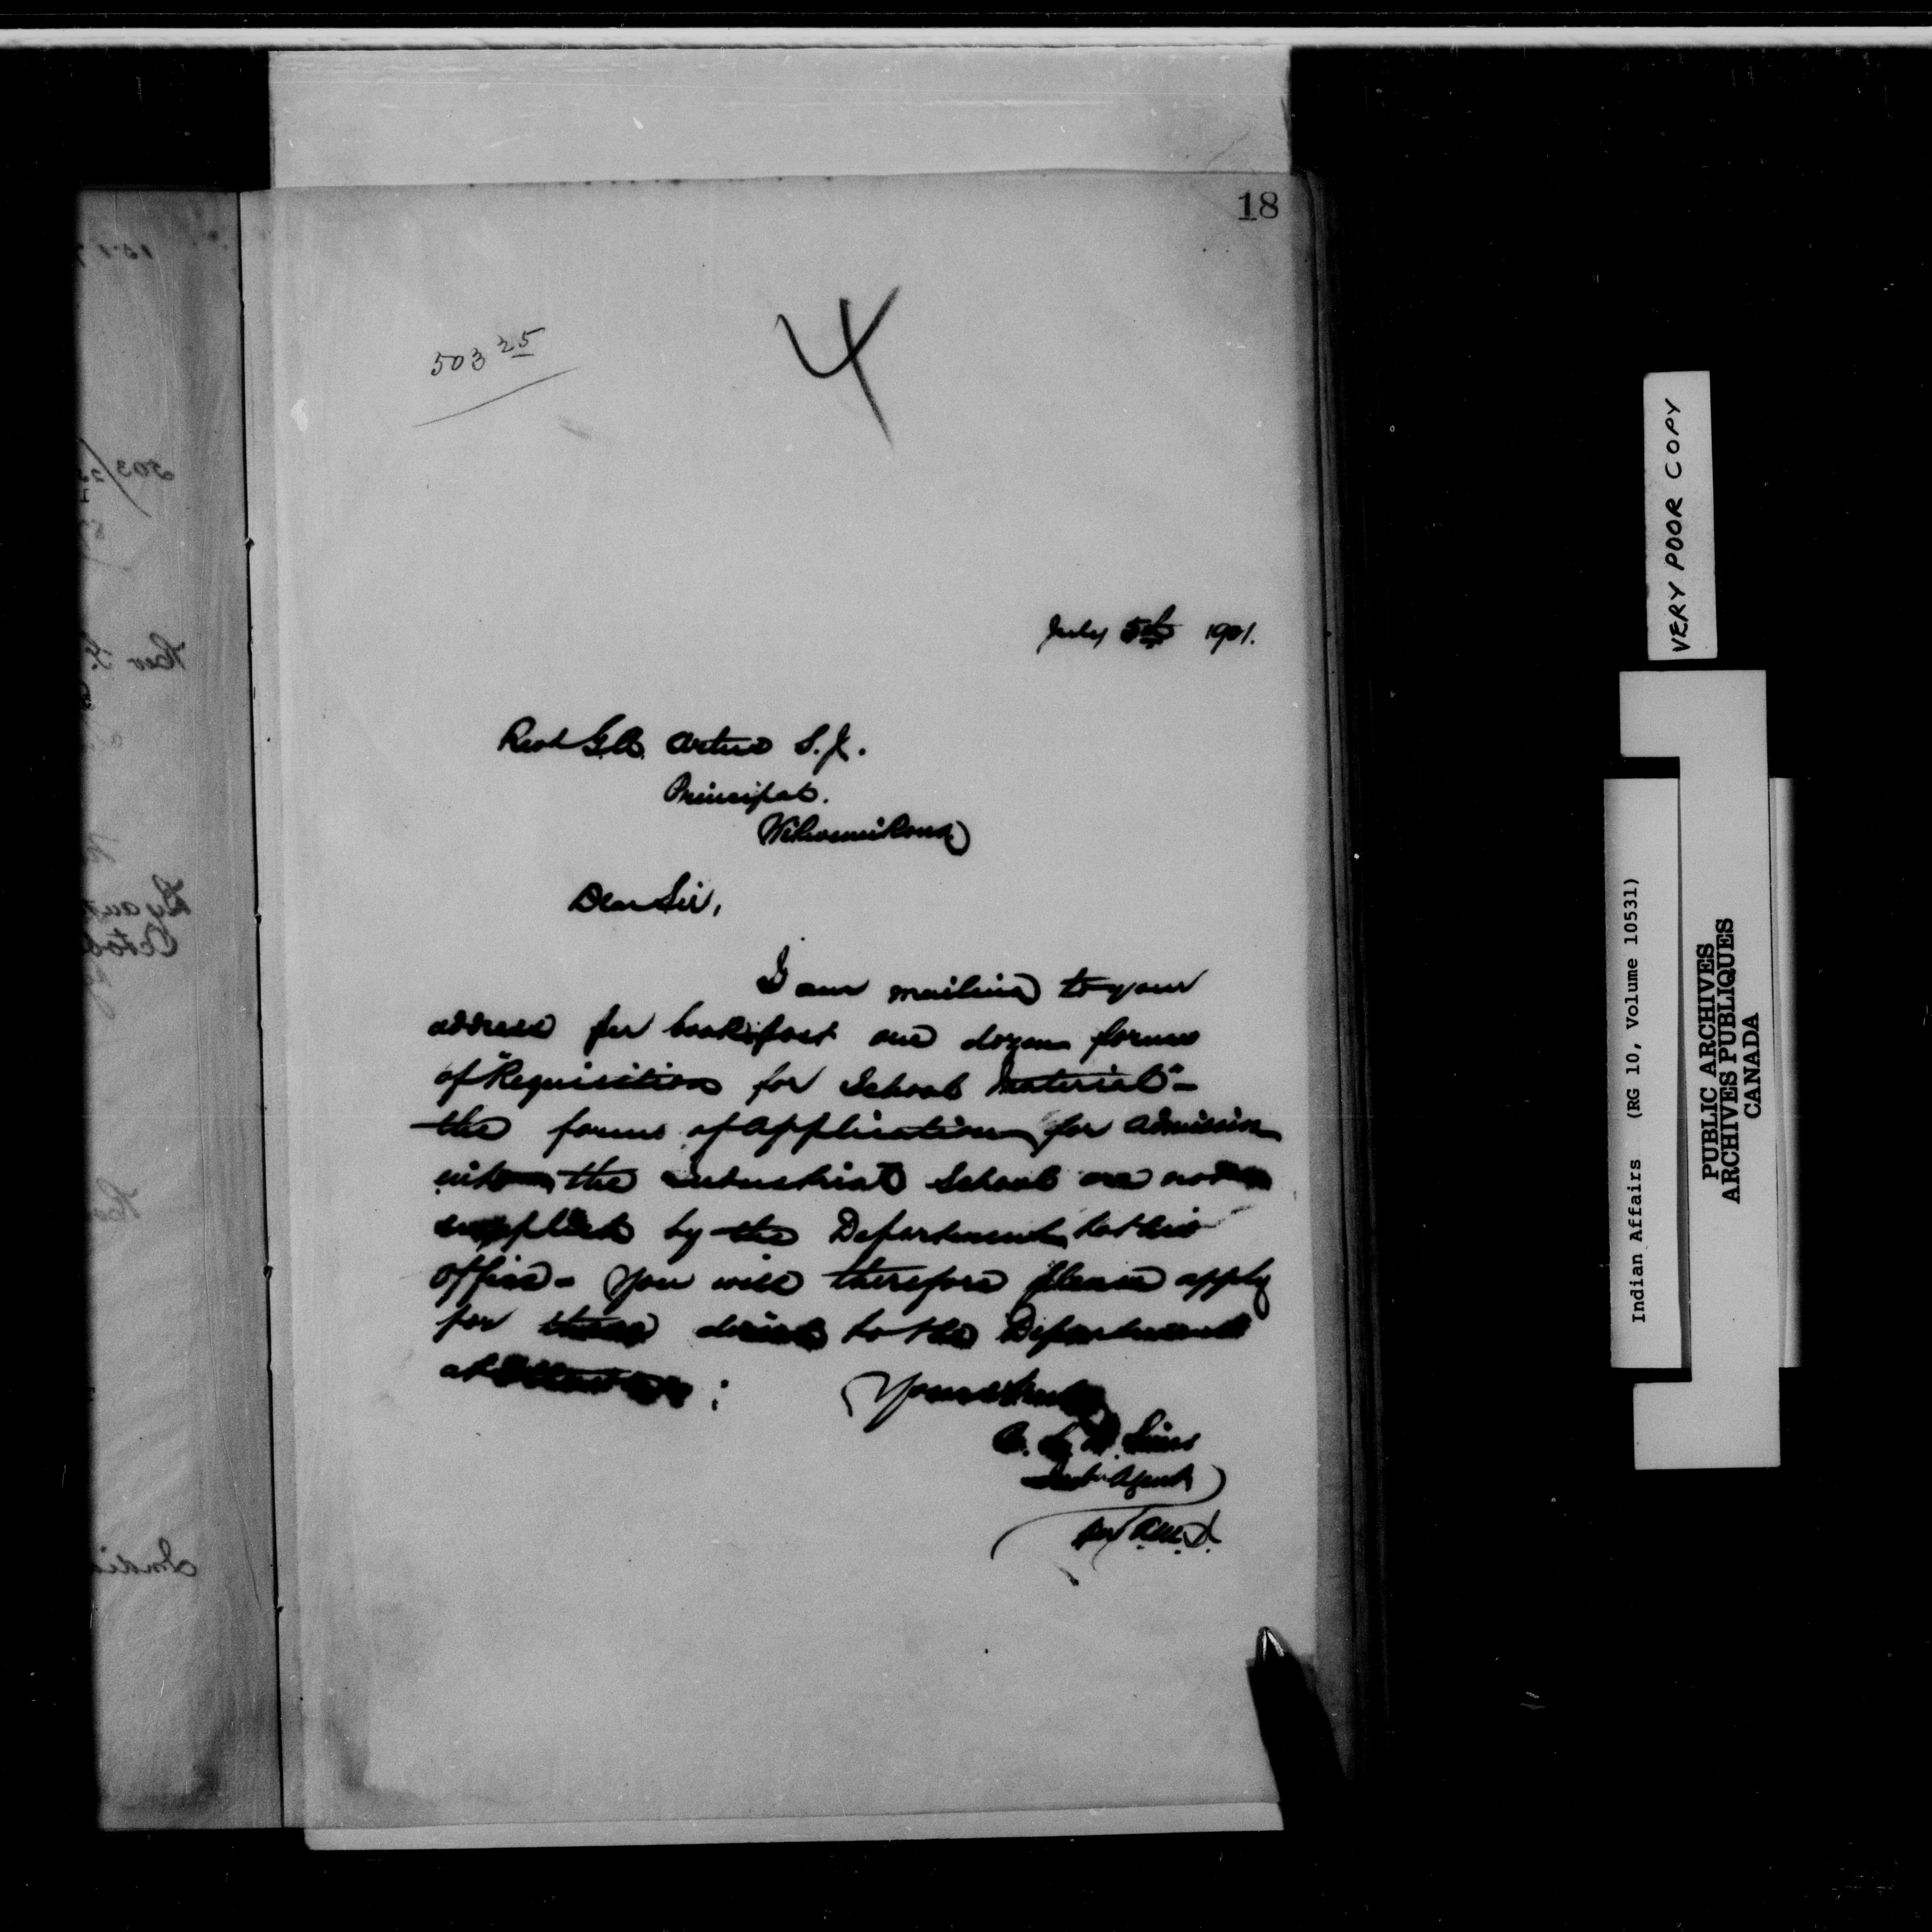 18
4
503 25
July 5th 1901.
Revd G.A. Artus S.J.
Principal.
Wikwemikong
Dear Sir,
I am mailing to your
address per book post one dozen forms
of "Requisition for School Material" -
the forms of Application for admission
into the industrial School are not
supplied by the Department to this
office - You will therefore please apply
for these direct to the Department
at Ottawa ;
Yours truly
C. L. D. Sims
Ind: Agent
per
VERY POOR COPY
Indian Affairs (RG 10, Volume 10531)
PUBLIC ARCHIVES
ARCHIVES PUBLIQUES
CANADA